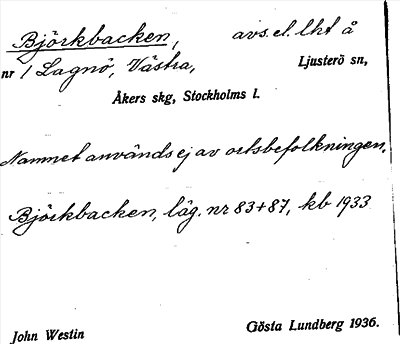 Björkbacken, avs. el. lht å
nr 1 Lagnö, Västra, Ljusterö sn,
Åkers skg, Stockholms l.
Namnet användes ej av ortsbefolkningen.
Björkbacken, läg. nr 83+87, kb 1933
John Westin Gösta Lundberg 1936.